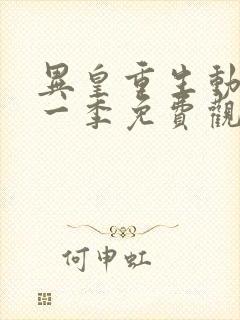 異皇重生動
一季免費觀
何申虹